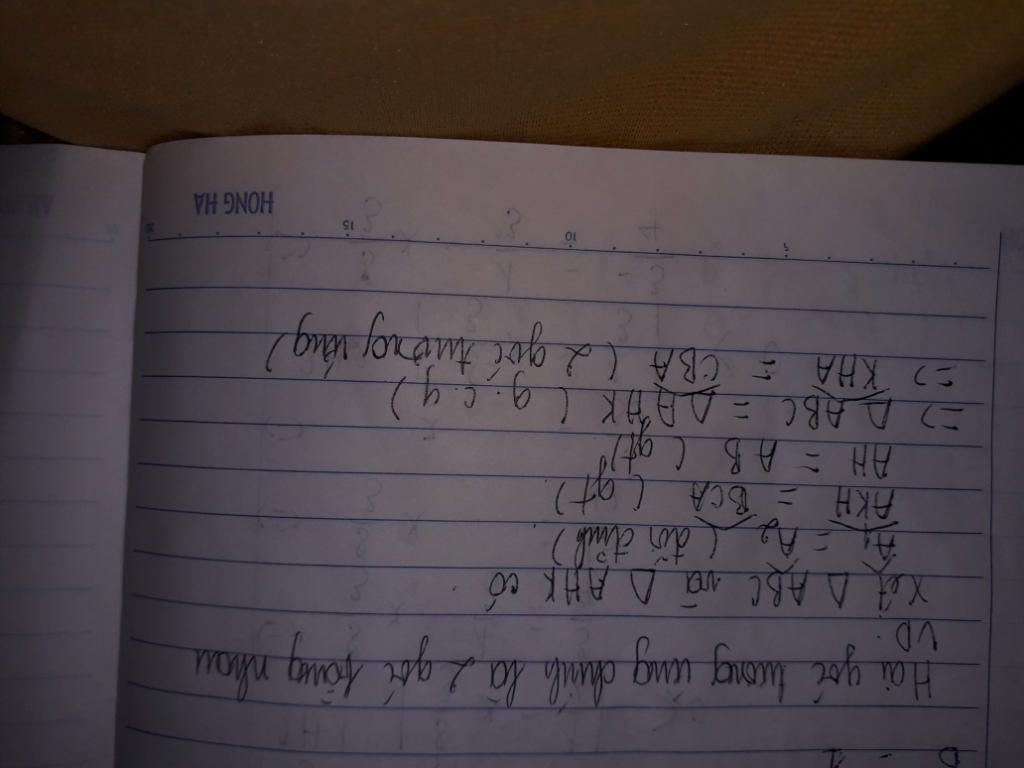 D = 1
Hai góc tương ứng chính là 2 góc bằng nhau
VD.
Xét Δ ABC và Δ AHK có
Â₁ = Â₂ (đối đỉnh)
AKH = BCA (gt)
AH = AB (gt)
=> Δ ABC = Δ AHK (g.c.g)
=> KHA = CBA (2 góc tương ứng)
5 10 15 20
HONG HA